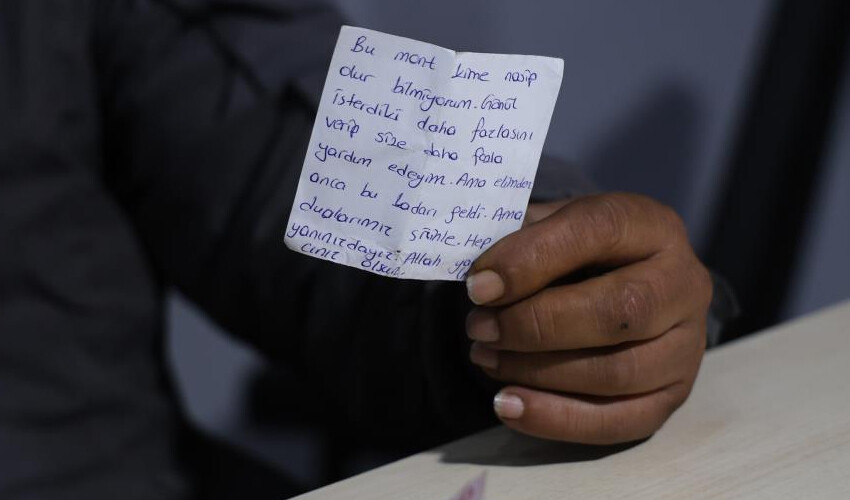 Bu mont kime nasip
olur bilmiyorum. Gönül
isterdiki daha fazlasını
verip size daha fazla
yardım edeyim. Ama elimden
anca bu kadarı geldi. Ama
dualarımız sizinle. Hep
yanınızdayız. Allah
olsun.